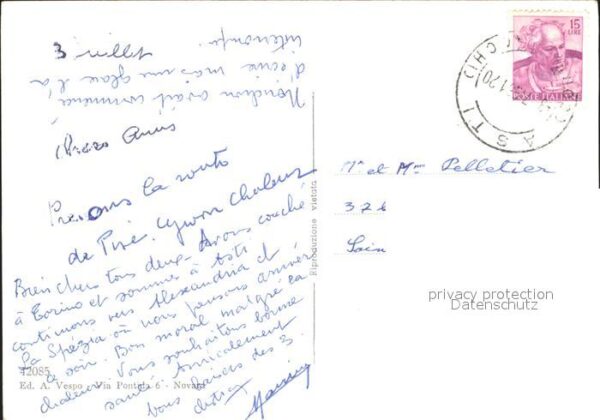 3 juillet
Nonchon avait commencé
d'écrire mais une glace l'a
interrompu.
Chers Amis
Prenons la route
de Pise. Gross chaleur
Bien chers tous deux. Avons couché
à Torino et sommes à Asti
continuons vers Alexandria et
La Spezia où nous pensons arriver
ce soir. Bon moral malgré la
chaleur. Vous souhaitons bonne
santé. Amicalement
bons baisers des 3
42085
Ed. A. Vespo - Via Pontida 6 - Novara
Riproduzione vietata
15
LIRE
POSTE ITALIANE
ASTI
Mr et Mme Pelletier
privacy protection
Datenschutz